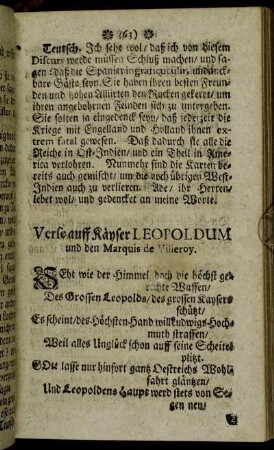 (63)
Teutsch. Ich sehe wol/ daß ich von diesem
Discurs werde müssen Schluß machen/ und sa-
gen: daß die Spanier ingraticuler, undanck-
bare Gäste seyn. Sie haben ihren besten Freun-
den und hohen Alliirten den Rucken gekeret/ um
ihren angebohrnen Feinden sich zu untergeben.
Sie solten so eingedenck seyn/ daß jederzeit die
Kriege mit Engelland und Holland ihnen ex-
trem fatal gewesen. Daß dadurch sie alle die
Reiche in Ost-Indien/ und ein Theil in Ame-
rica verlohren. Nunmehr sind die Karten be-
reits auch gemischt/ um die noch übrigen West-
Indien auch zu verlieren. Ade/ ihr Herren/
lebet wol/ und gedencket an meine Worte.
Verse auff Käyser LEOPOLDUM
und den Marquis de Villeroy.
SEht wie der Himmel doch die höchst ge-
rechte Waffen/
Des Grossen Leopolds/ des grossen Kaysers
schützt/
Es scheint/ des Höchsten Hand will Ludwigs Hoch-
muth straffen/
Weil alles Unglück schon auff seine Scheitel
plitzt.
GOtt lasse nur hinfort gantz Oestreichs Wohl-
fahrt gläntzen/
Und Leopoldens Haupt werd stets von Se-
gen neu/